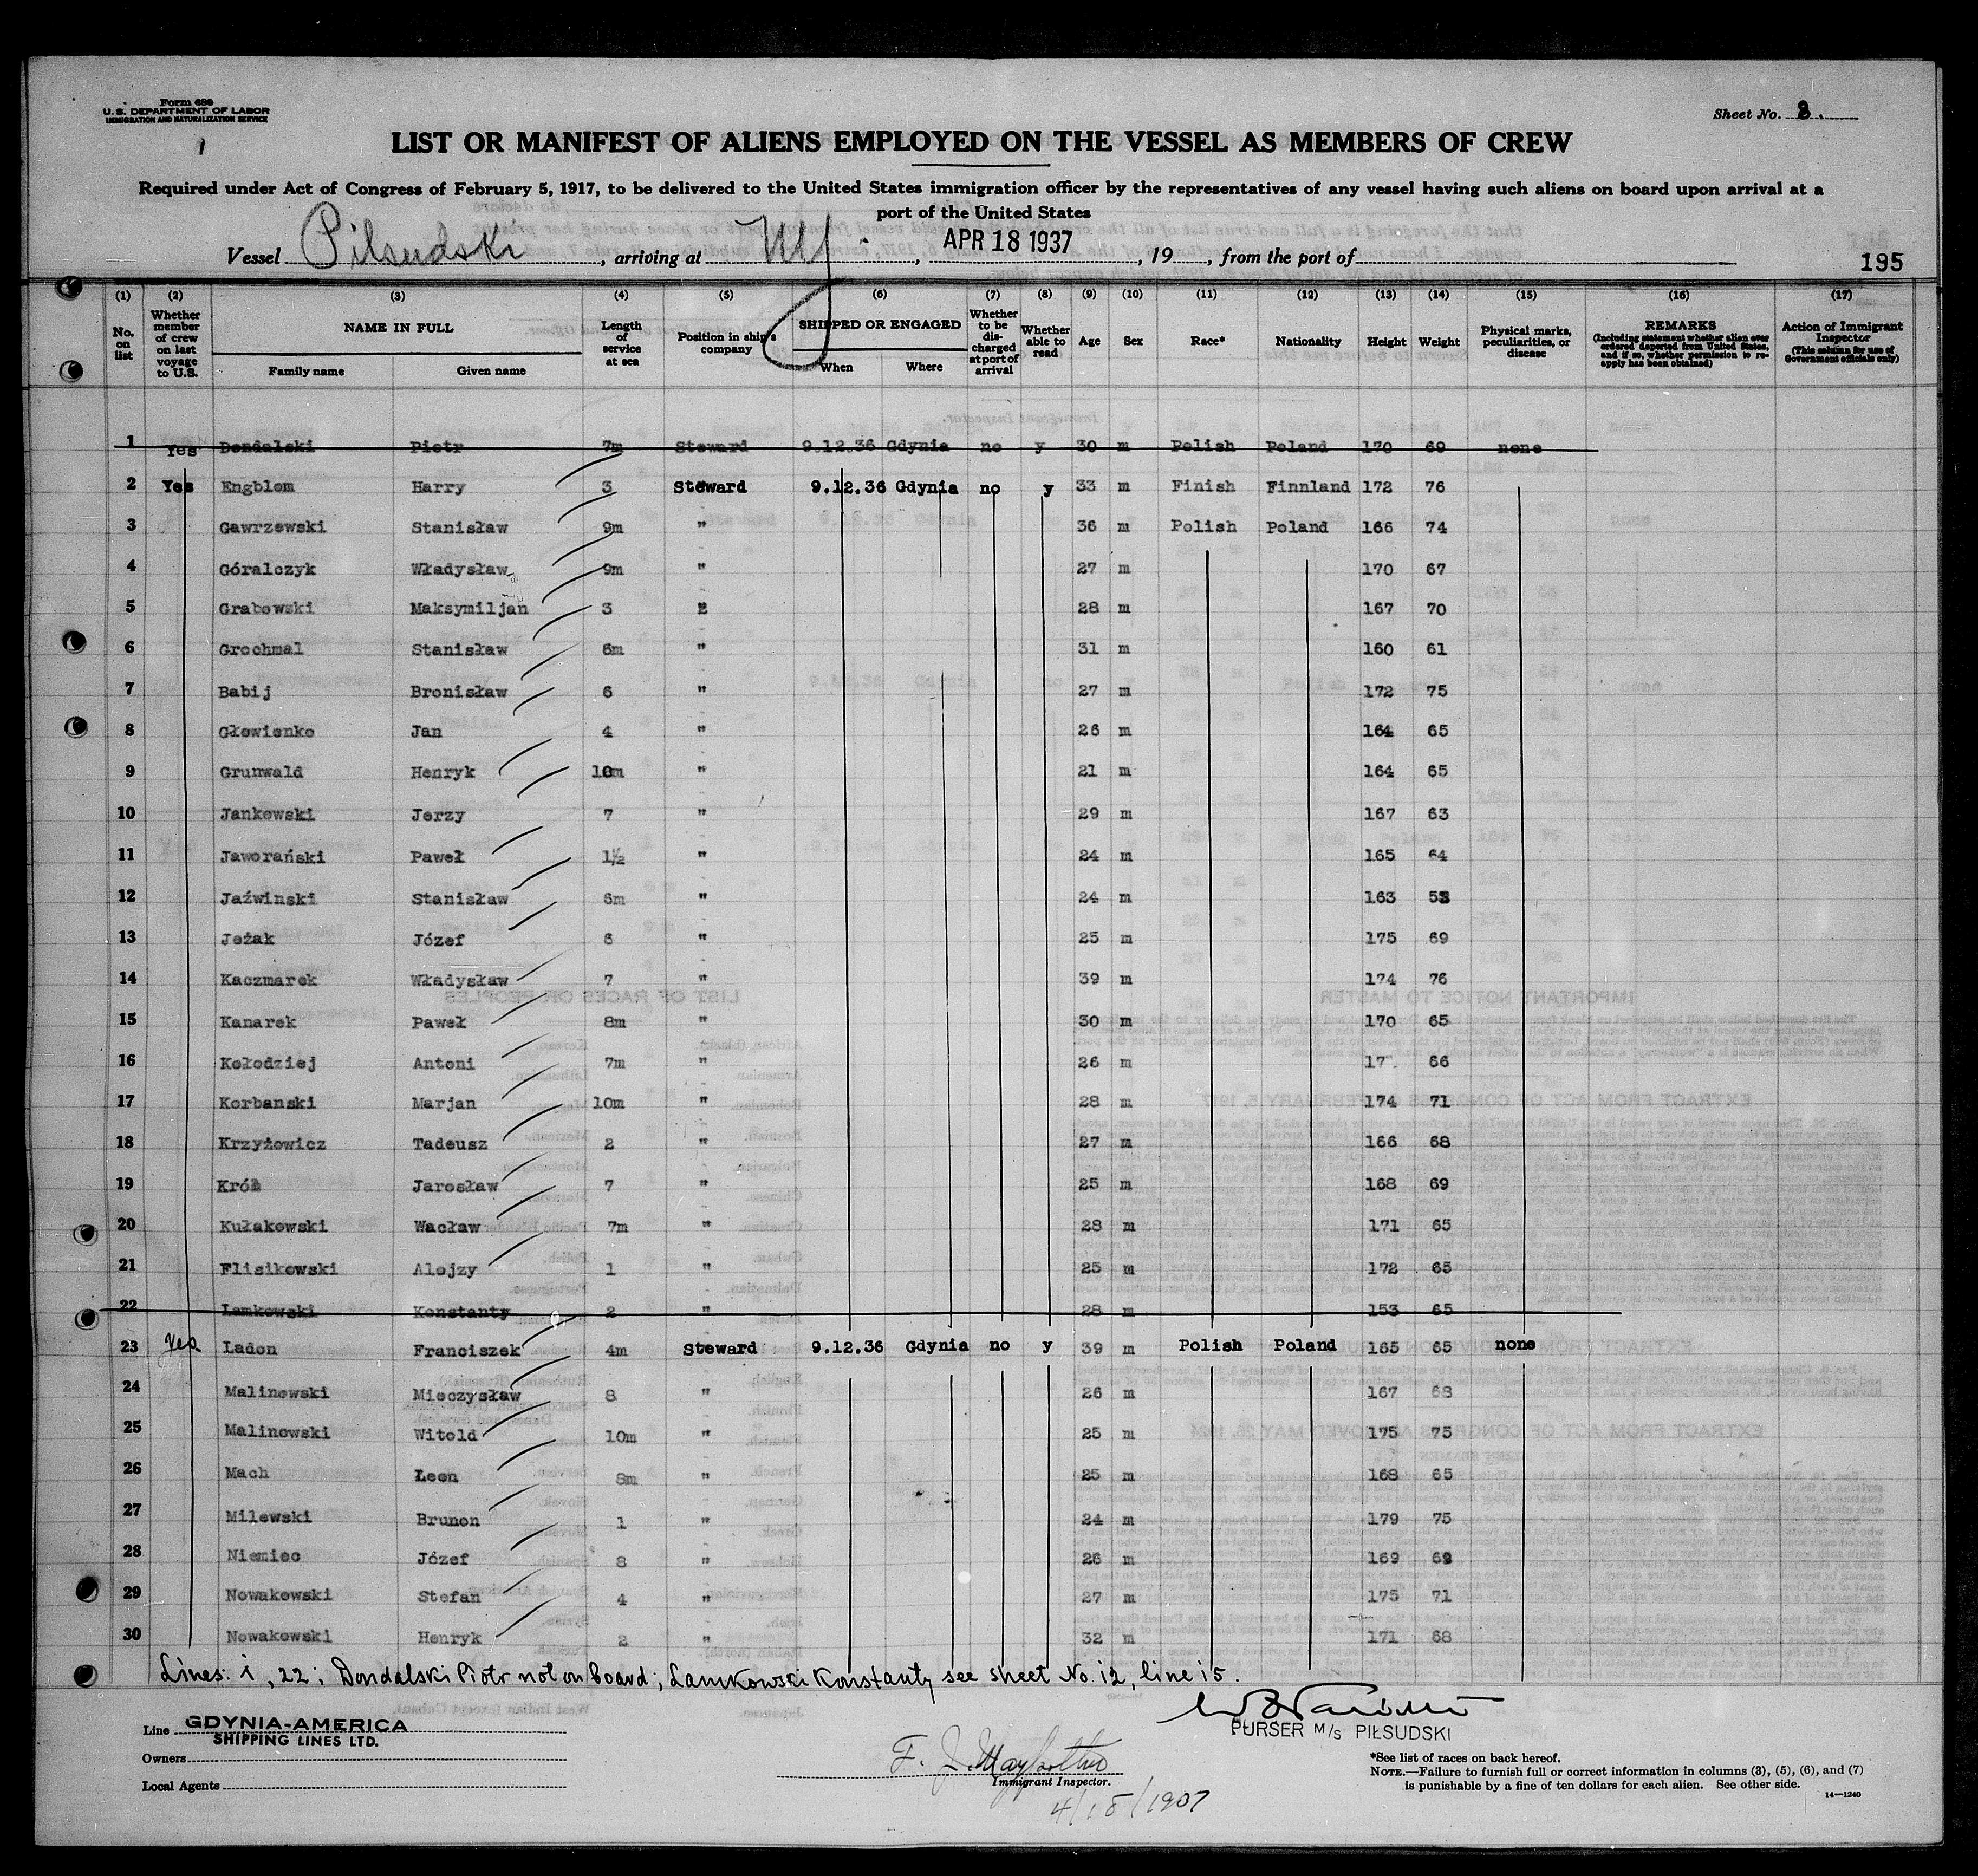 Form 680
U. S. DEPARTMENT OF LABOR
IMMIGRATION AND NATURALIZATION SERVICE
Sheet No. 8.
1
LIST OR MANIFEST OF ALIENS EMPLOYED ON THE VESSEL AS MEMBERS OF CREW
Required under Act of Congress of February 5, 1917, to be delivered to the United States immigration officer by the representatives of any vessel having such aliens on board upon arrival at a
port of the United States
Vessel Pilsudski, arriving at NY, APR 18 1937, 19, from the port of
195
(1) (2) (3) (4) (5) (6) (7) (8) (9) (10) (11) (12) (13) (14) (15) (16) (17)
No. on list Whether member of crew on last voyage to U.S. NAME IN FULL Family name Given name Length of service at sea Position in ship's company SHIPPED OR ENGAGED When Where Whether to be discharged at port of arrival Whether able to read Age Sex Race* Nationality Height Weight Physical marks, peculiarities, or disease REMARKS (Including statement whether alien ever ordered deported from United States, and if so, whether permission to reapply has been obtained) Action of Immigrant Inspector (This column for use of Government officials only)
1 Yes Dondalski Piotr 7m Steward 9.12.36 Gdynia no y 30 m Polish Poland 170 69 none
2 Yes Engblom Harry 3 Steward 9.12.36 Gdynia no y 33 m Finish Finnland 172 76
3 Gawrzewski Stanisław 9m " 36 m Polish Poland 166 74
4 Góralczyk Władysław 9m " 27 m 170 67
5 Grabowski Maksymiljan 3 " 28 m 167 70
6 Grochmal Stanisław 6m " 31 m 160 61
7 Babij Bronisław 6 " 27 m 172 75
8 Głowienko Jan 4 " 26 m 164 65
9 Grunwald Henryk 10m " 21 m 164 65
10 Jankowski Jerzy 7 " 29 m 167 63
11 Jaworański Paweł 1½ " 24 m 165 64
12 Jaźwinski Stanisław 6m " 24 m 163
13 Jeżak Józef 6 " 25 m 175 69
14 Kaczmarek Władysław 7 " 39 m 174 76
15 Kanarek Paweł 8m " 30 m 170 65
16 Kołodziej Antoni 7m " 26 m 66
17 Korbanski Marjan 10m " 28 m 174 71
18 Krzyżowicz Tadeusz 2 " 27 m 166 68
19 Król Jarosław 7 " 25 m 168 69
20 Kułakowski Wacław 7m " 28 m 171 65
21 Flisikowski Alojzy 1 " 25 m 172 65
22 Lamkowski Konstanty 2 " 28 m 153 65
23 Yes Ladon Franciszek 4m Steward 9.12.36 Gdynia no y 39 m Polish Poland 165 65 none
24 Malinowski Mieczysław 8 " 26 m 167 68
25 Malinowski Witold 10m " 25 m 175 75
26 Mach Leon 8m " 25 m 168 65
27 Milewski Brunon 1 " 24 m 179 75
28 Niemiec Józef 8 " 26 m 169
29 Nowakowski Stefan 4 " 27 m 175 71
30 Nowakowski Henryk 2 " 32 m 171 68
Lines: 1, 22; Dondalski Piotr not on board; Lamkowski Konstanty see sheet No. 12, line 15.
Line GDYNIA-AMERICA
SHIPPING LINES LTD.
Owners
Local Agents
PURSER M/S PIŁSUDSKI
Immigrant Inspector.
4/18/1937
*See list of races on back hereof.
NOTE.—Failure to furnish full or correct information in columns (3), (5), (6), and (7)
is punishable by a fine of ten dollars for each alien. See other side.
14—1240